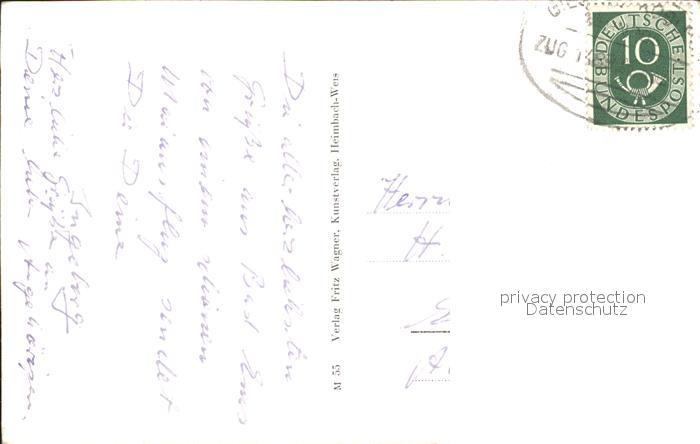 Die allerherzlichsten
Grüße aus Bad Ems
von einem schönen
Maiausflug sendet
Dir Deine
Ingeborg
Herzliche Grüße an
Deine lieben Angehörigen.
M 55 Verlag Fritz Wagner, Kunstverlag, Heimbach-Weis
ZUG
DEUTSCHE
BUNDESPOST
10
Herrn
H.
privacy protection
Datenschutz